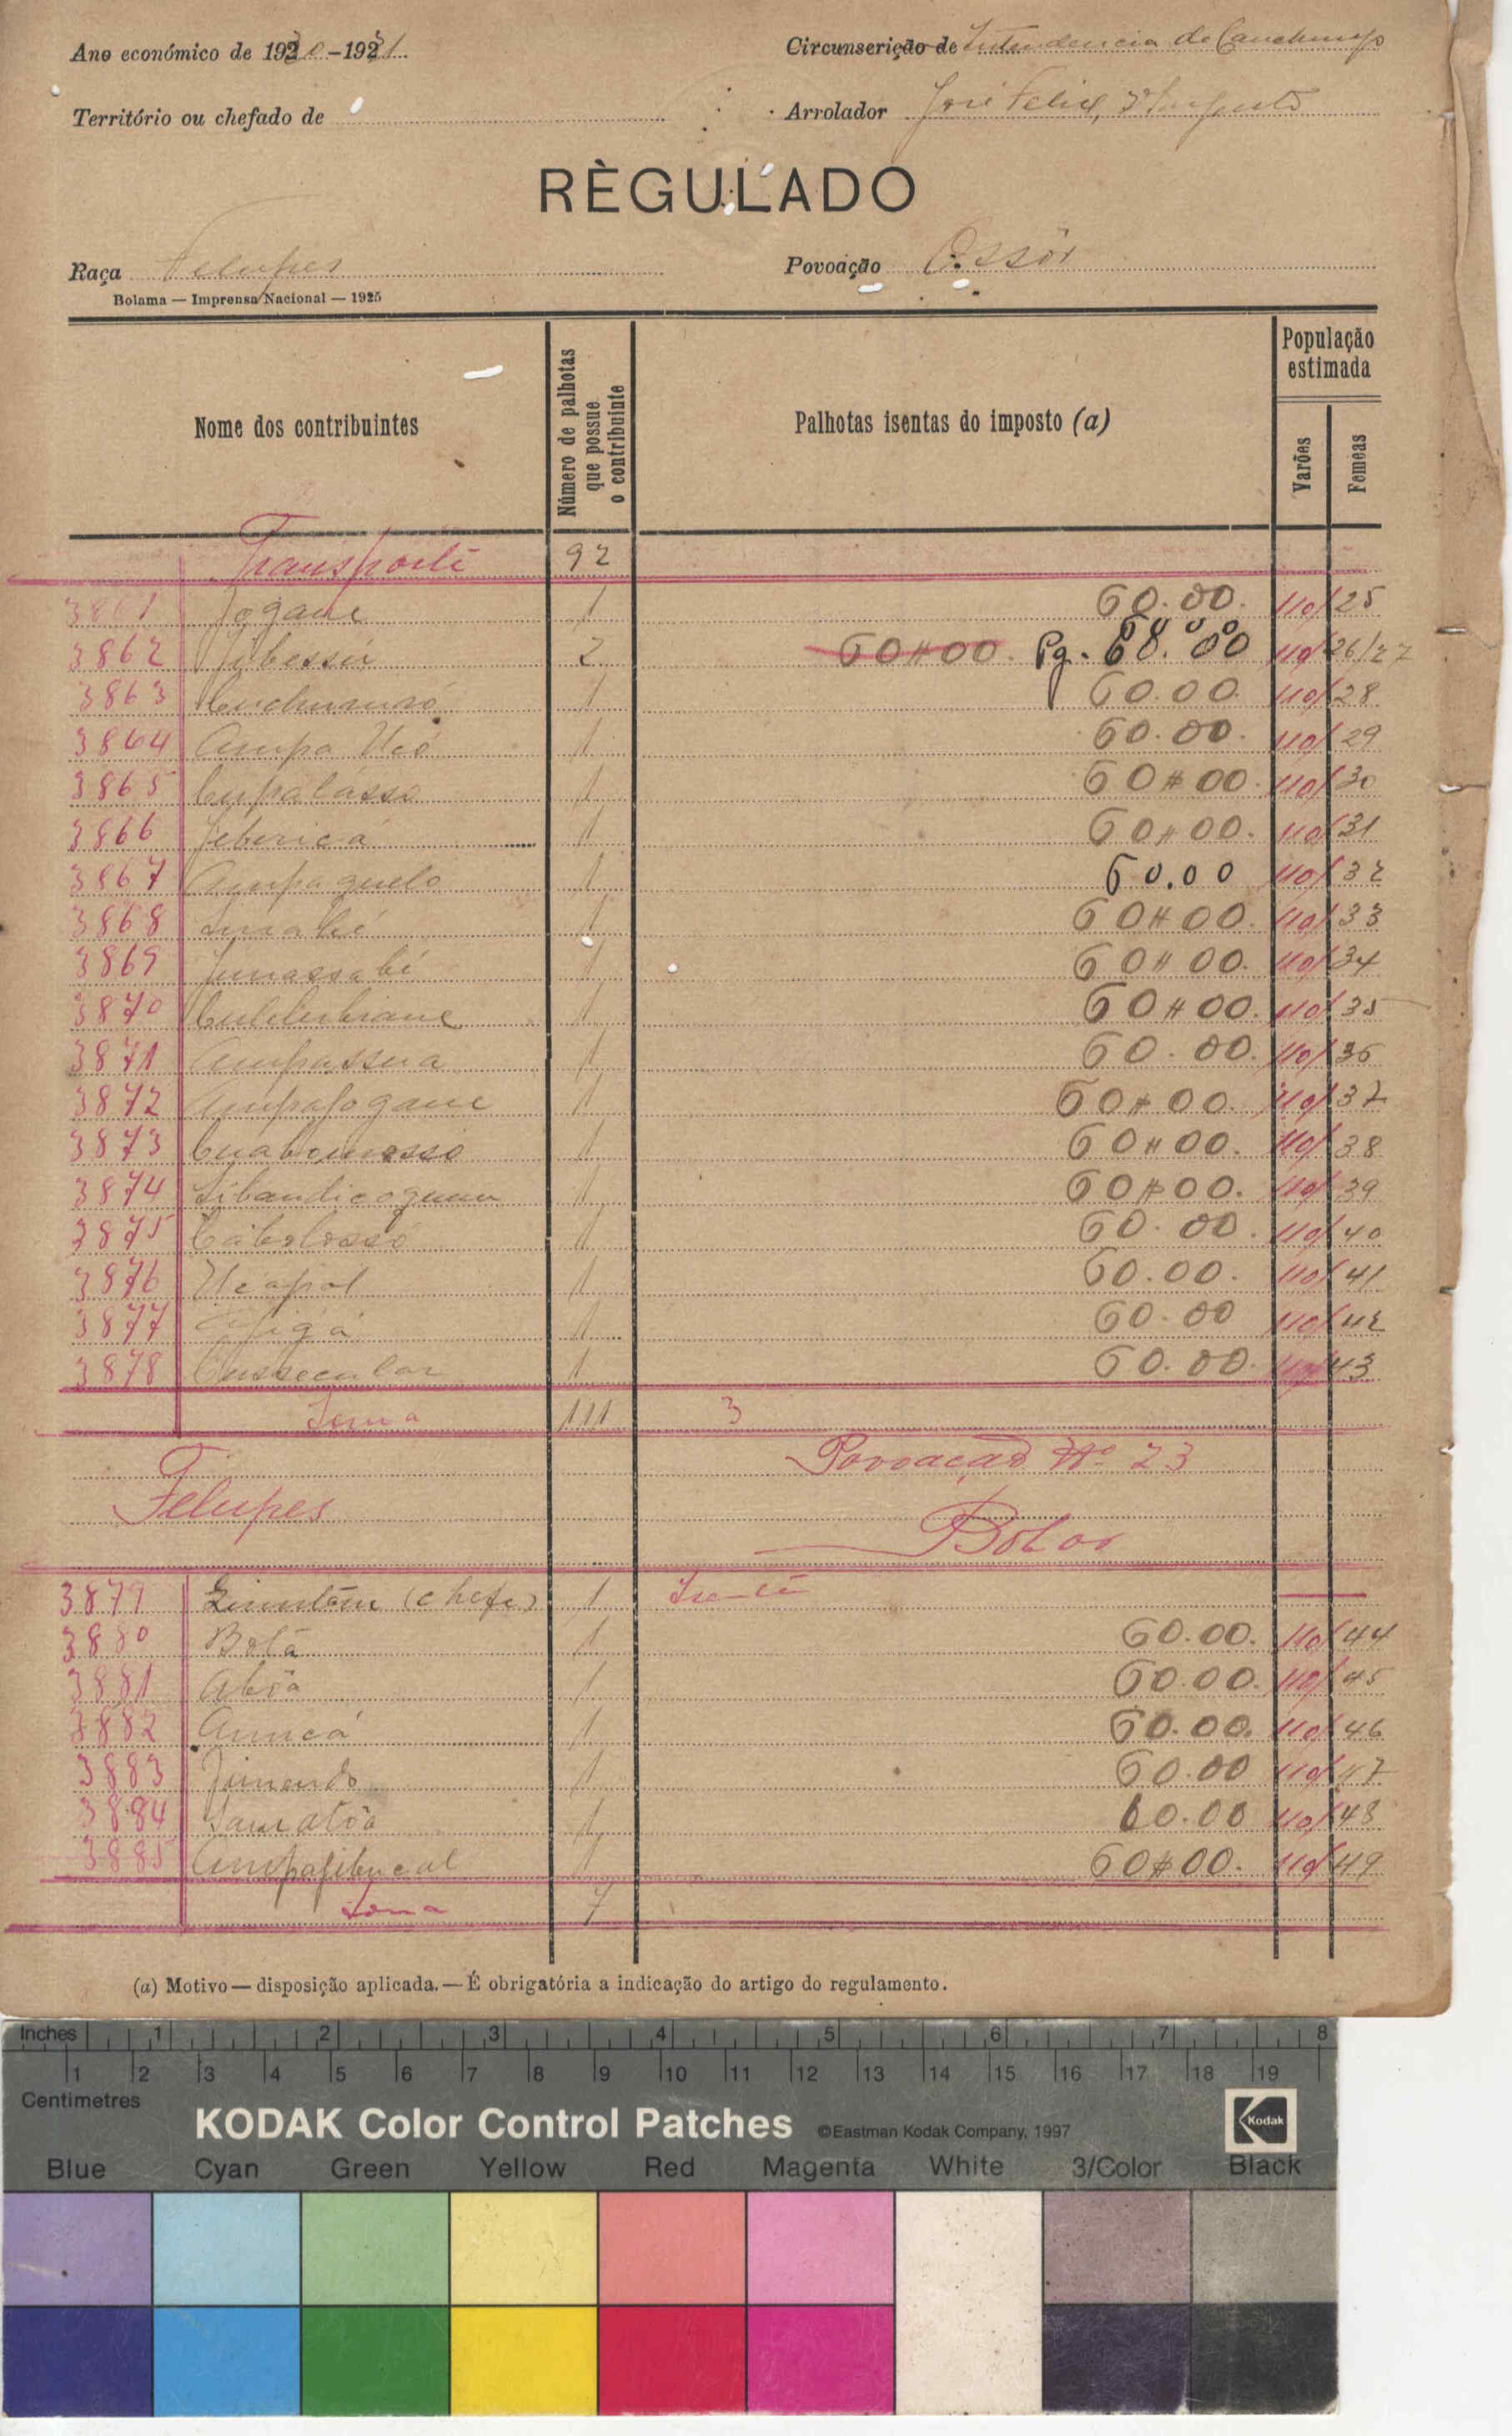 Ano económico de 1930-1931
Circunscrição de Intendencia de Canchungo
Território ou chefado de
Arrolador José Felix, 2º Sargento
RÈGULADO
Raça Felupes
Povoação Ossôr
Bolama — Imprensa Nacional — 1925
Nome dos contribuintes
Número de palhotas que possue o contribuinte
Palhotas isentas do imposto (a)
População estimada
Varões
Femeas
Transporte 92
3861 Jogane 1 60.00. 110/25
3862 Jubessú 2 60#00. Pg. 60.00 110/26/27
3863 1 60.00. 110/28
3864 Ampa Ucó 1 60.00. 110/29
3865 Cupalasso 1 60#00. 110/30
3866 Jebericá 1 60#00. 110/31
3867 Ampaguelo 1 60.00 110/32
3868 1 60#00. 110/33
3869 Junassabi 1 60#00. 110/34
3870 1 60#00. 110/35
3871 Ampassua 1 60.00. 110/36
3872 Ampajogane 1 60#00. 110/37
3873 1 60#00. 110/38
3874 1 60#00. 110/39
3875 Cabolosso 1 60.00. 110/40
3876 Ucapol 1 60.00. 110/41
3877 1 60.00 110/42
3878 Cussecular 1 60.00. 110/43
Soma 111 3
Povoação Nº 23
Felupes
Bolor
3879 (chefe) 1 Isento
3880 Bolã 1 60.00. 110/44
3881 Abôa 1 60.00. 110/45
3882 1 60.00. 110/46
3883 1 60.00 110/47
3884 1 60.00 110/48
3885 Ampajibucal 1 60#00. 110/49
Soma 7
(a) Motivo — disposição aplicada. — É obrigatória a indicação do artigo do regulamento.
Inches 1 2 3 4 5 6 7 8
1 2 3 4 5 6 7 8 9 10 11 12 13 14 15 16 17 18 19
Centimetres
KODAK Color Control Patches ©Eastman Kodak Company, 1997 Kodak
Blue Cyan Green Yellow Red Magenta White 3/Color Black